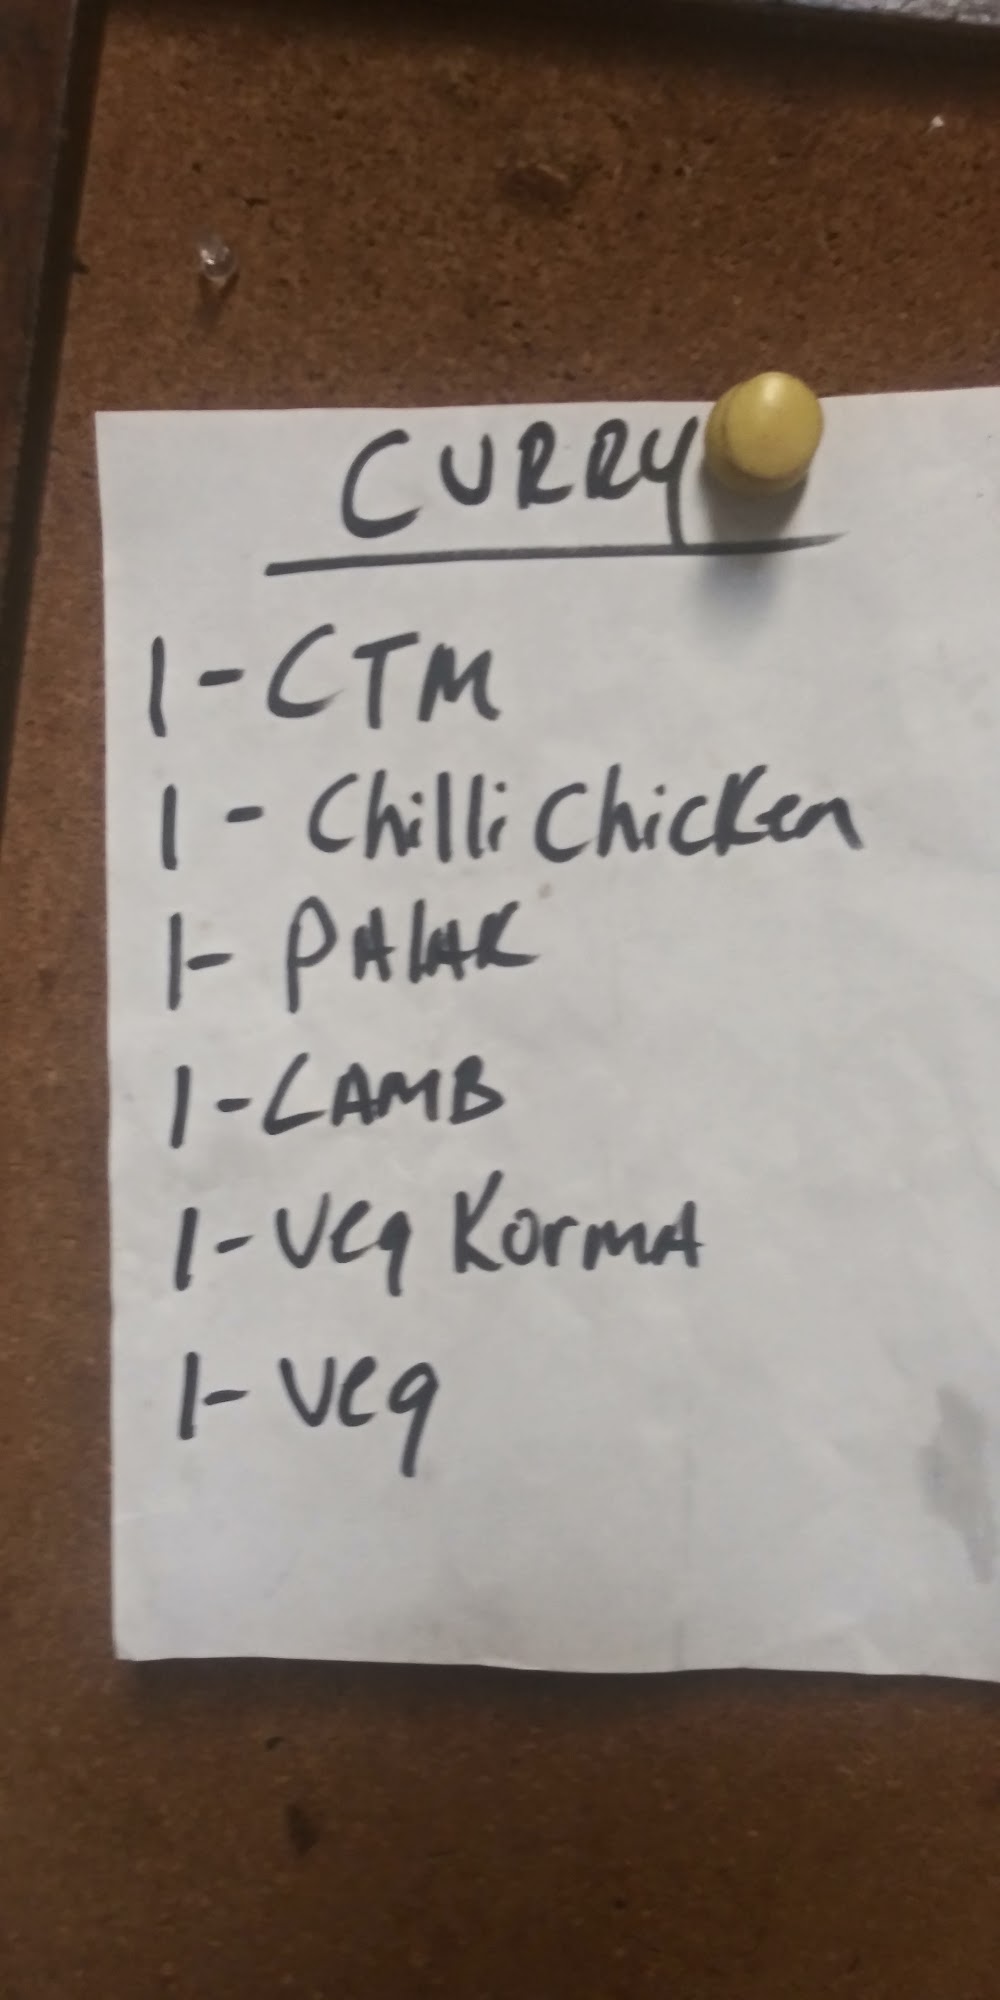 CURRY
1-CTM
1 - Chilli Chicken
1- PALAK
1-LAMB
1-Veg Korma
1- Veg